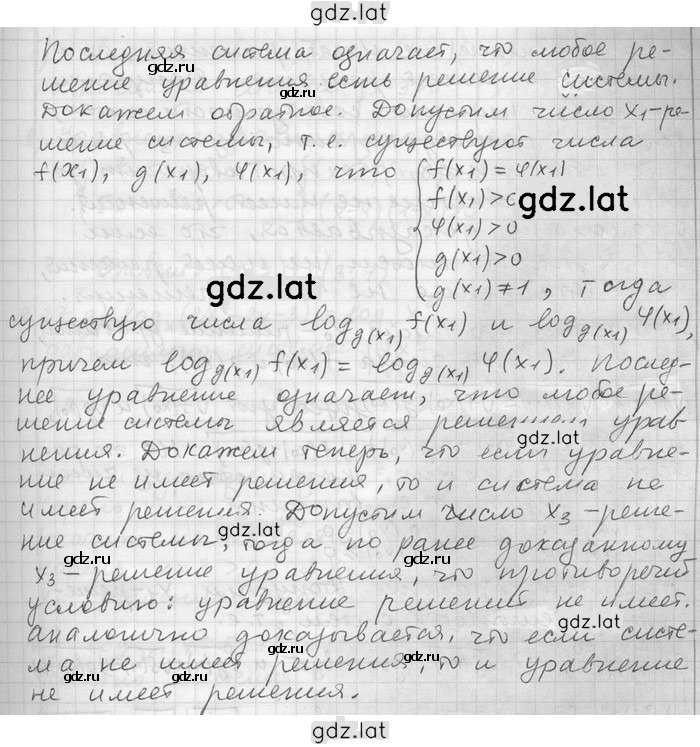 gdz.lat
Последняя система означает, что любое ре-
gdz.lat gdz.lat
шение уравнения есть решение системы.
Докажем обратное. Допустим число x₁-ре-
шение системы, т.е. существуют числа
f(x₁), g(x₁), φ(x₁), что { f(x₁) = φ(x₁)
f(x₁) > 0
gdz.lat
φ(x₁) > 0
g(x₁) > 0
gdz.lat
g(x₁) ≠ 1, тогда
существую числа log_g(x₁) f(x₁) и log_g(x₁) φ(x₁),
причем log_g(x₁) f(x₁) = log_g(x₁) φ(x₁). Послед-
нее уравнение означает, что любое ре-
шение системы является решением урав-
gdz.lat
нения. Докажем теперь, что если уравне-
ние не имеет решения, то и система не
имеет решения. Допустим число x₃ -реше-
ние системы, тогда по ранее доказанному
gdz.lat gdz.lat
x₃ - решение уравнения, что противоречит
условию: уравнение решений не имеет.
Аналогично доказывается, что если систе-
ма не имеет решения, то и уравнение
gdz.lat gdz.lat
не имеет решения.
gdz.lat